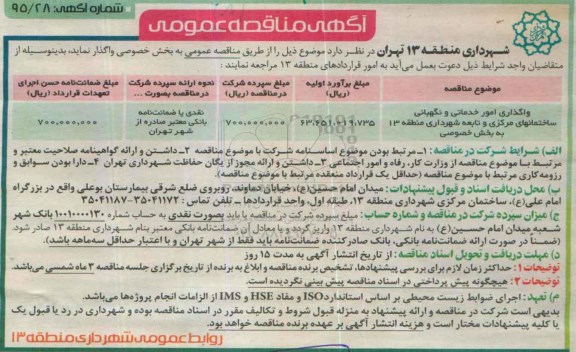 شماره آگهی: ۹۵/۲۸
آگهی مناقصه عمومی
شهرداری منطقه ۱۳ تهران در نظر دارد موضوع ذیل را از طریق مناقصه عمومی به بخش خصوصی واگذار نماید، بدینوسیله از
متقاضیان واجد شرایط ذیل دعوت بعمل می‌آید به امور قراردادهای منطقه ۱۳ مراجعه نمایند:
موضوع مناقصه
مبلغ برآورد اولیه (ریال)
مبلغ سپرده شرکت درمناقصه (ریال)
نحوه ارائه سپرده شرکت درمناقصه بصورت ...
مبلغ ضمانت‌نامه حسن اجرای تعهدات قرارداد (ریال)
واگذاری امور خدماتی و نگهبانی ساختمانهای مرکزی و تابعه شهرداری منطقه ۱۳ به بخش خصوصی
۷۰۰,۰۰۰,۰۰۰
نقدی یا ضمانت‌نامه بانکی معتبر صادره از شهر تهران
۷۰۰,۰۰۰,۰۰۰
الف) شرایط شرکت در مناقصه: ۱ـ مرتبط بودن موضوع اساسنامه شرکت با موضوع مناقصه ۲ـ داشتن و ارائه گواهینامه صلاحیت معتبر و
مرتبط با موضوع مناقصه از وزارت کار، رفاه و امور اجتماعی ۳ـ داشتن و ارائه مجوز از یگان حفاظت شهرداری تهران ۴ـ دارا بودن سوابق و
رزومه کاری مرتبط با موضوع مناقصه (حداقل یک قرارداد منعقده مرتبط با موضوع مناقصه).
ب) محل دریافت اسناد و قبول پیشنهادات: میدان امام حسین(ع)، خیابان دماوند، روبروی ضلع شرقی بیمارستان بوعلی واقع در بزرگراه
امام علی(ع)، ساختمان مرکزی شهرداری منطقه ۱۳، طبقه اول، واحد قراردادها ـ تلفن تماس: ۳۵۰۴۱۱۷۲ - ۳۵۰۴۱۱۸۷
ج) میزان سپرده شرکت در مناقصه و شماره حساب: مبلغ سپرده شرکت در مناقصه یا باید بصورت نقدی به حساب شماره ۱۰۰۱۰۰۰۰۱۳۰ بانک شهر
شعبه میدان امام حسین(ع) به نام شهرداری منطقه ۱۳ واریز گردد و یا معادل آن ضمانت‌نامه بانکی معتبر بنام شهرداری منطقه ۱۳ صادر شود.
(ضمناً در صورت ارائه ضمانت‌نامه بانکی، بانک صادرکننده ضمانت‌نامه باید فقط از شهر تهران و با اعتبار حداقل سه‌ماهه باشد).
د) مهلت دریافت و تحویل اسناد مناقصه: از تاریخ انتشار آگهی به مدت ۱۵ روز
توضیحات ۱: حداکثر زمان لازم برای بررسی پیشنهادها، تشخیص برنده مناقصه و ابلاغ به برنده از تاریخ برگزاری جلسه مناقصه ۳ ماه شمسی می‌باشد.
توضیحات ۲: هیچگونه پیش پرداختی در اسناد مناقصه پیش بینی نگردیده است.
م) تعهد: اجرای ضوابط زیست محیطی بر اساس استاندارد ISO و مفاد HSE و IMS از الزامات انجام پروژه‌ها می‌باشد.
بدیهی است شرکت در مناقصه و ارائه پیشنهاد به منزله قبول شروط و تکالیف مقرر در اسناد مناقصه بوده و شهرداری در رد یا قبول یک
یا کلیه پیشنهادات مختار است و هزینه انتشار آگهی بر عهده برنده مناقصه خواهد بود.
روابط عمومی شهرداری منطقه ۱۳